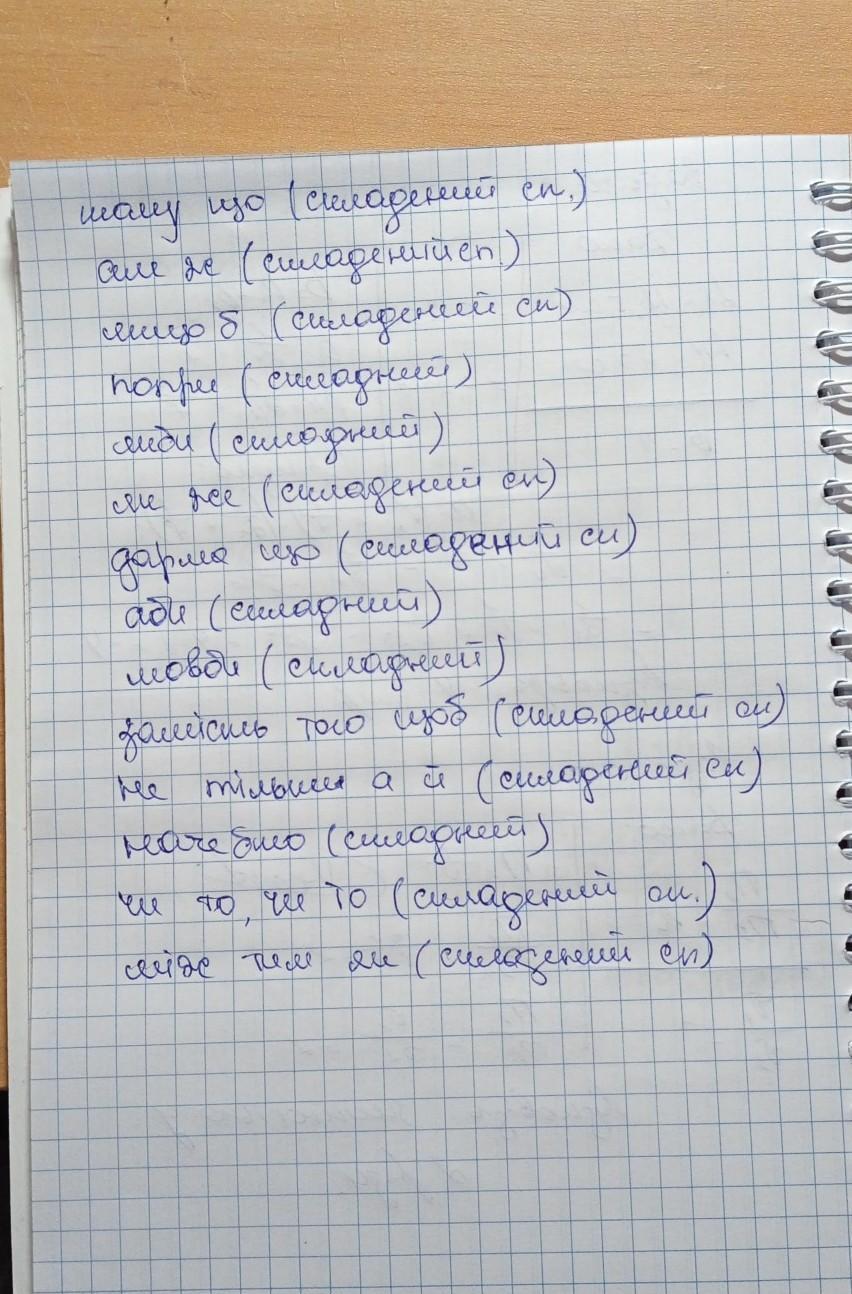 тому що (складений сп.)
але же (складений сп.)
якщо б (складений сп)
попри (складний)
якби (складний)
як же (складений сп)
дарма що (складений сп)
аби (складний)
мовби (складний)
замість того щоб (складений сп)
не тільки а й (складений сп)
неначебто (складний)
чи то, чи то (складений сп.)
між тим як (складений сп)